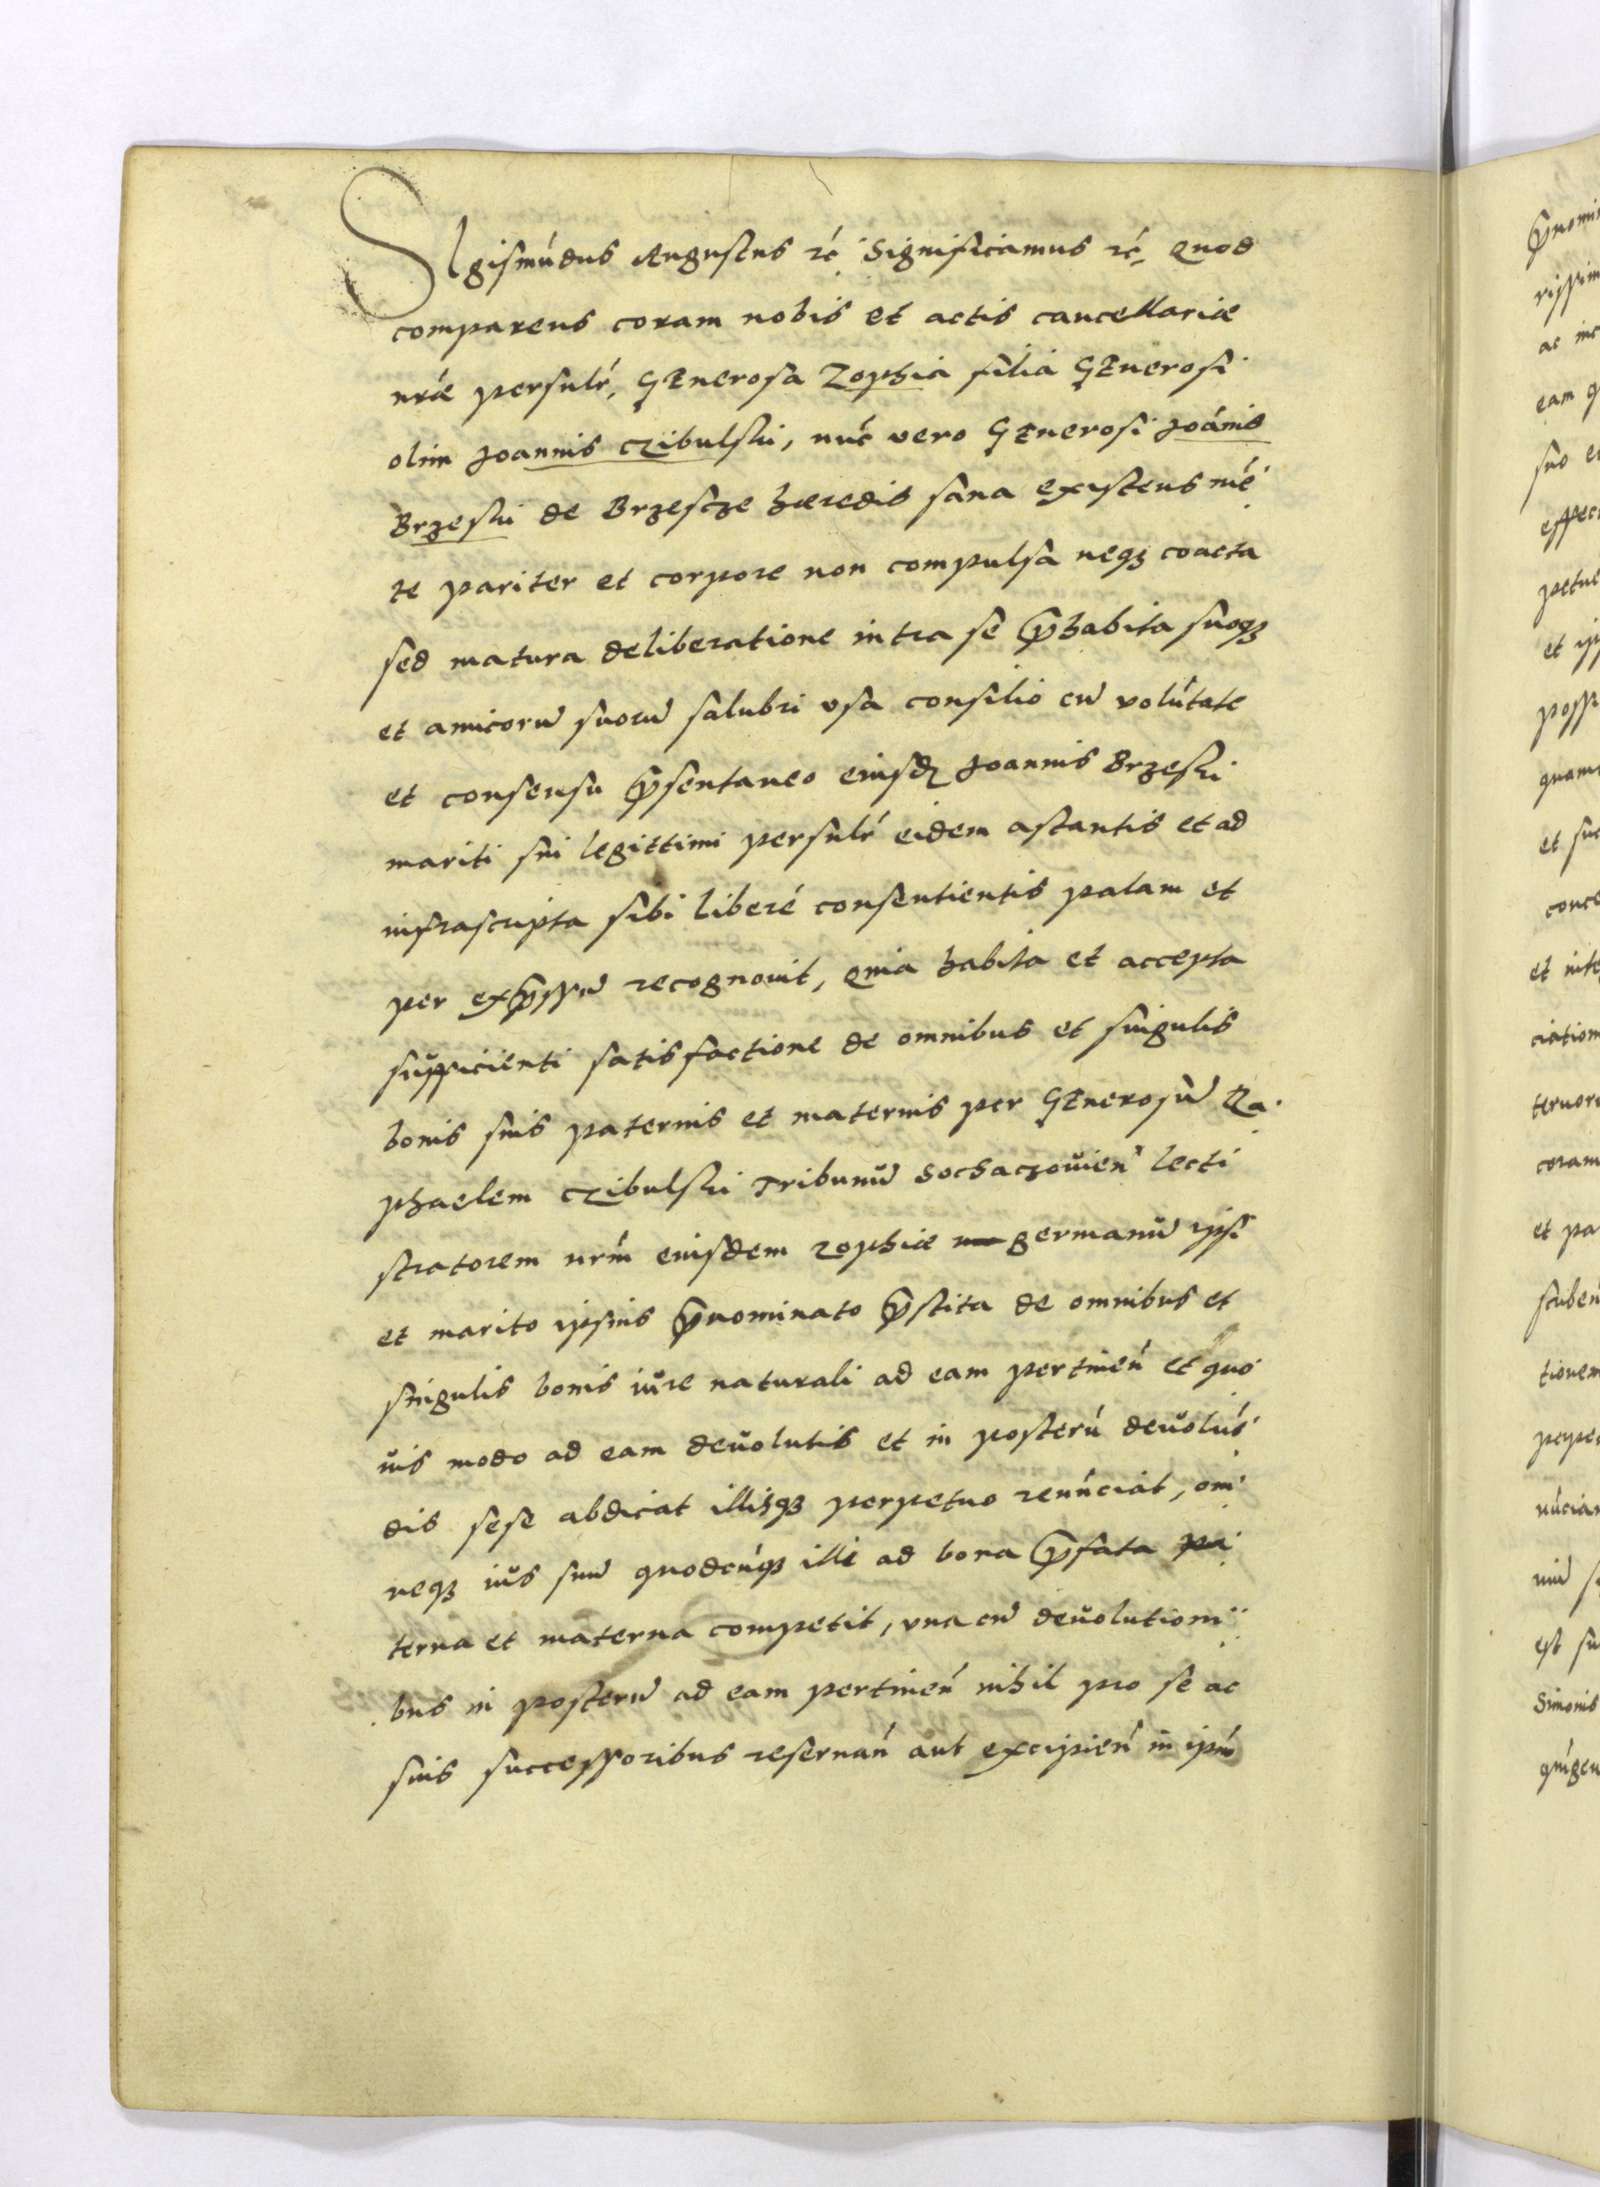 SIgismúdus Augustus rć Significamus rć, Quod
comparens coram nobis et actis cancellariæ
nrǽ persnlr, GEnerosa Zophia filia GEnerosi
olim Joannis Czibulski, núc vero GEnerosi Joánis
Brzeski de Brzescze hæredis sana existens mé
te pariter et corpore non compulsa neqȝ coacta
sed matura deliberatione intra se p̄habita suoqȝ
et amicorū suorū salubri usa consilio cū volútate
et consensu p̄sentaneo eiusdȝ Joannis Brzeski
mariti sui legittimi persnlr eidem astantis et ad
infrascripta sibi liberé consentientis palam et
per exp̄ssū recognovit, Quia habita et accepta
sufficienti satisfactione de omnibus et singulis
bonis suis paternis et maternis per GEnerosū Ra
phaelem Czibulski Tribunū Sochaczovień lecti
stratorem nrḿ eiusdem Zophiæ germanū ipsi
et marito ipsius p̄nominato p̄stita de omnibus et
singulis bonis iure naturali ad eam pertineń et quo
vis modo ad eam devolutis et in posterú devolúc
dis sese abdicat illisqȝ perpetuo renúciat, om
neqȝ ius suū quodcúqȝ illi ad bona p̄fata pa
terna et materna competit, una cū devolutioni
bus in posterū ad eam pertineń nihil pro se ac
suis successoribus reservań aut excipień in ipm̄
p̄nomi
rissim
ac in
eam q
suo e
et
poss
et su
conce
et inte
ciation
coram
et pa
tionem
est su
Simonis